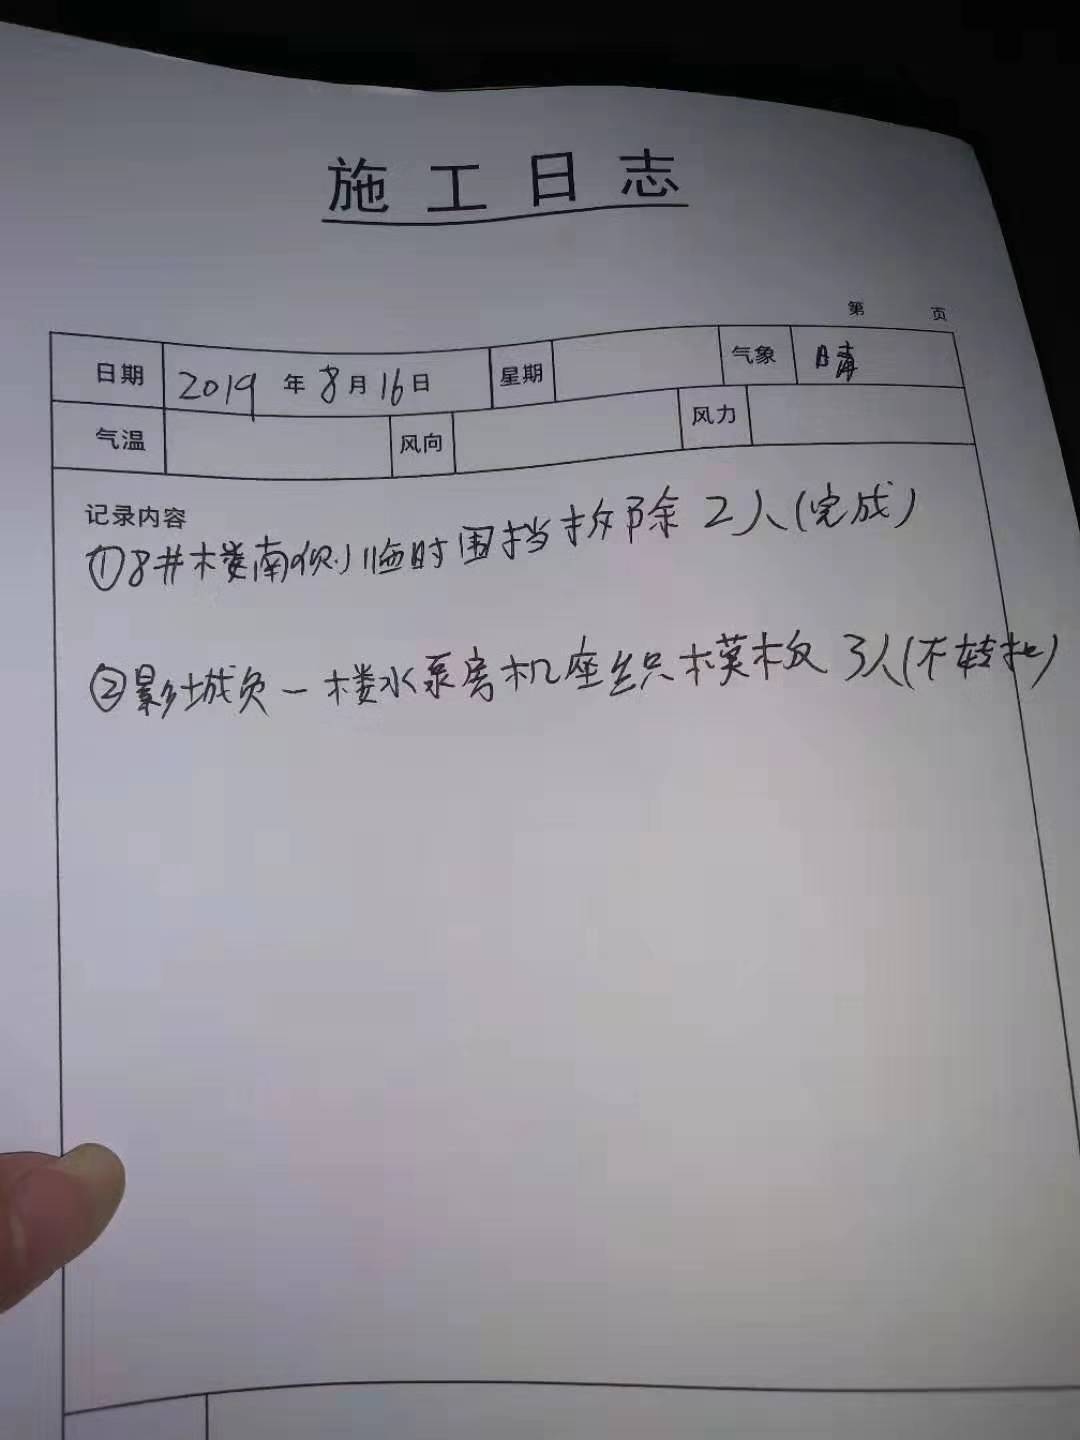 施工日志
第 页
日期 2019 年 8 月 16 日 星期 气象 晴
气温 风向 风力
记录内容
①8#楼南侧临时围挡拆除 2人(完成)
②影城负一楼水泵房机座织模板 3人(木转批)